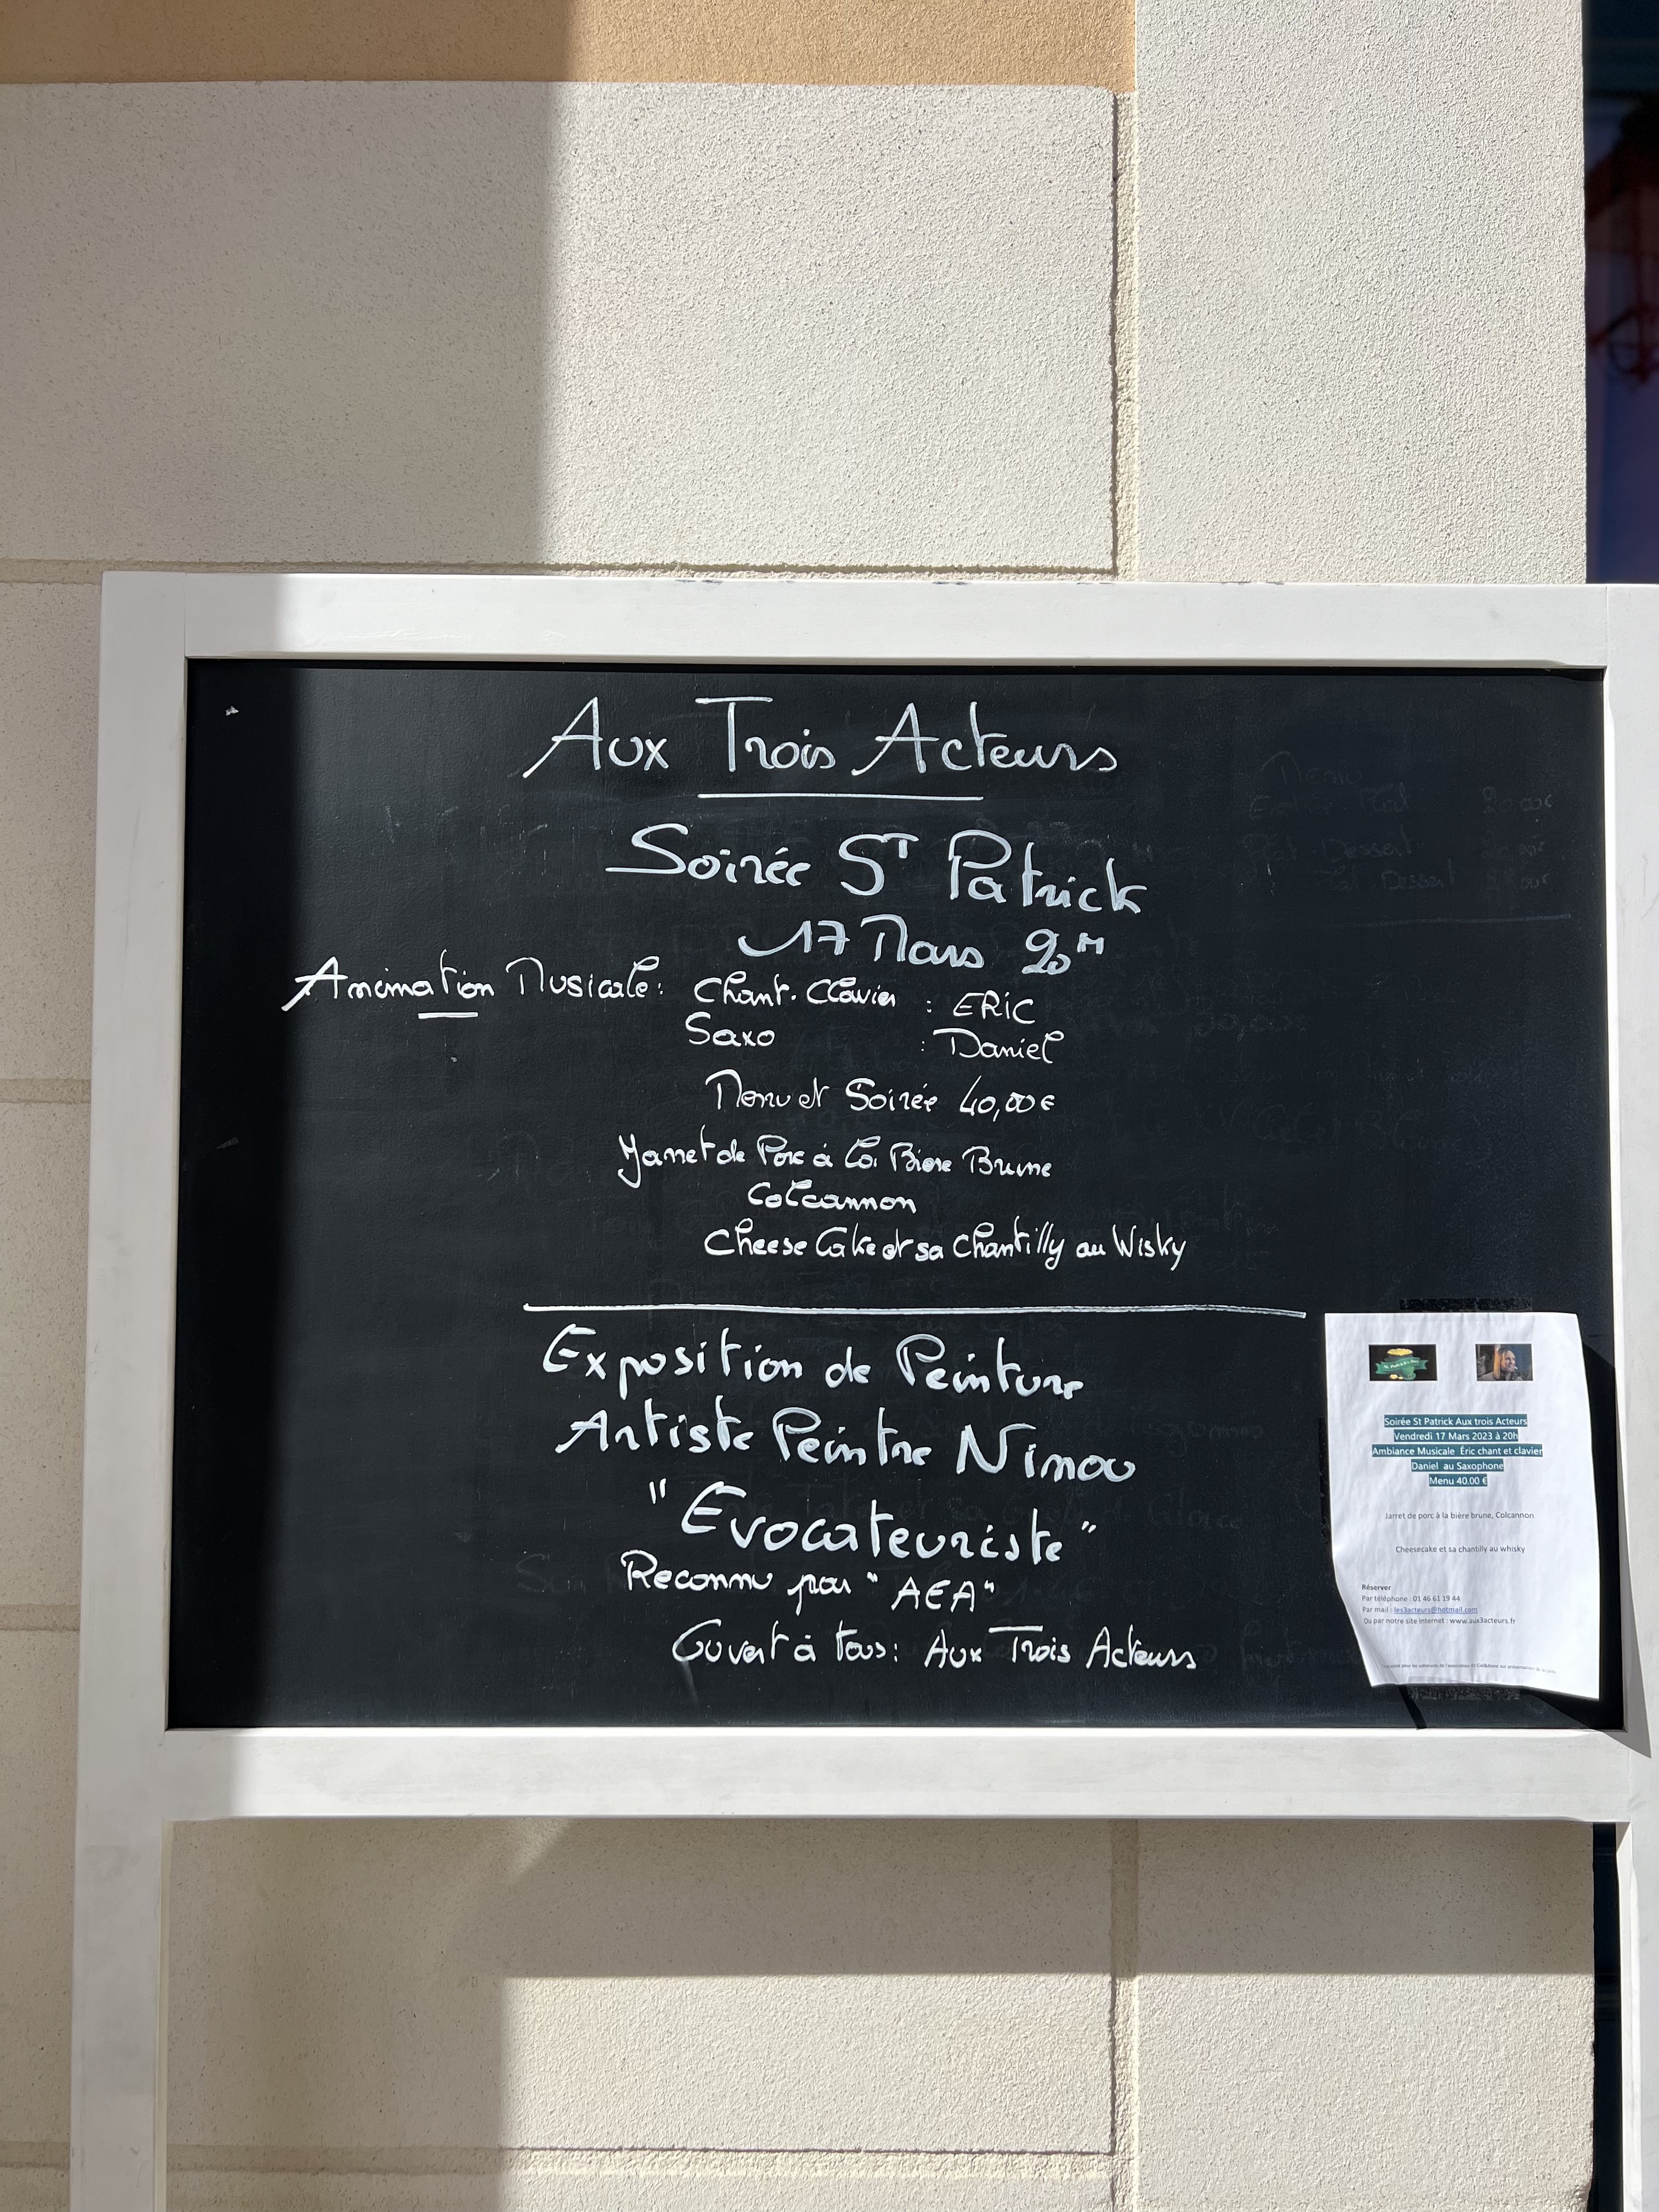 Aux Trois Acteurs
Soirée St Patrick
17 Mars 20H
Animation Musicale: Chant. Clavier : ERiC
Saxo : Daniel
Menu et Soirée 40,00€
Jarret de Porc à la Biere Brune
Colcannon
Cheese Cake et sa Chantilly au Wisky
Exposition de Peinture
Artiste Peintre Nimou
"Evocateuriste"
Reconnu par "AEA"
Ouvert à tous: Aux Trois Acteurs
Soirée St Patrick Aux trois Acteurs
Vendredi 17 Mars 2023 à 20h
Ambiance Musicale Éric chant et clavier
Daniel au Saxophone
Menu 40.00 €
Jarret de porc à la bière brune, Colcannon
Cheesecake et sa chantilly au whisky
Réserver
Par téléphone : 01 46 61 19 44
Par mail : les3acteurs@hotmail.com
Ou par notre site internet : www.aux3acteurs.fr